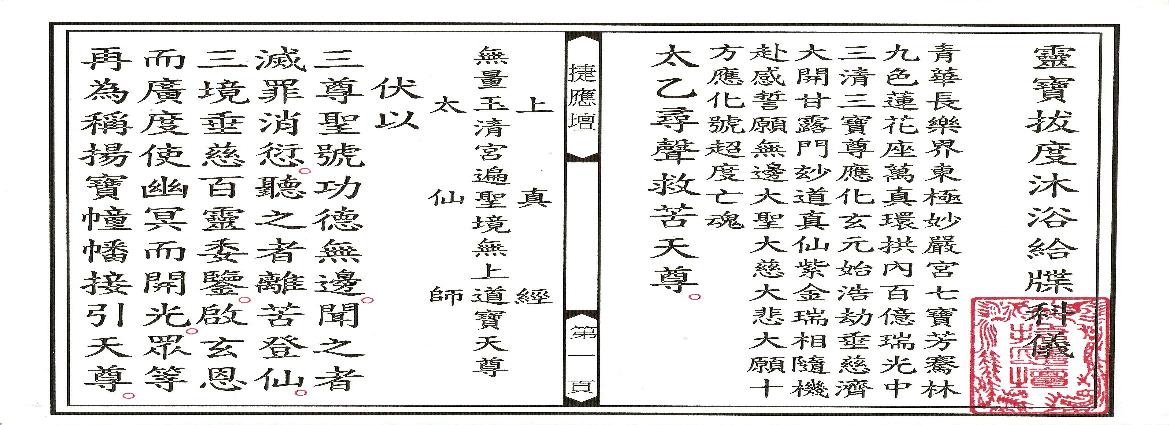 靈寶拔度沐浴給牒科儀
青華長樂界東極妙嚴宮七寶芳騫林
九色蓮花座萬真環拱內百億瑞光中
三清三寶尊應化玄元始浩劫垂慈濟
大開甘露門玅道真仙紫金瑞相隨機
赴感誓願無邊大聖大慈大悲大願十
方應化號超度亡魂
太乙尋聲救苦天尊。
捷應壇
第一頁
上真經
無量玉清宮遍聖境無上道寶天尊
太仙師
伏以
三尊聖號功德無邊。聞之者
滅罪消愆。聽之者離苦登仙。
三境垂慈百靈委鑒。啟玄恩
而廣度使幽冥而開光。眾等
再為稱揚寶幢幡接引天尊。